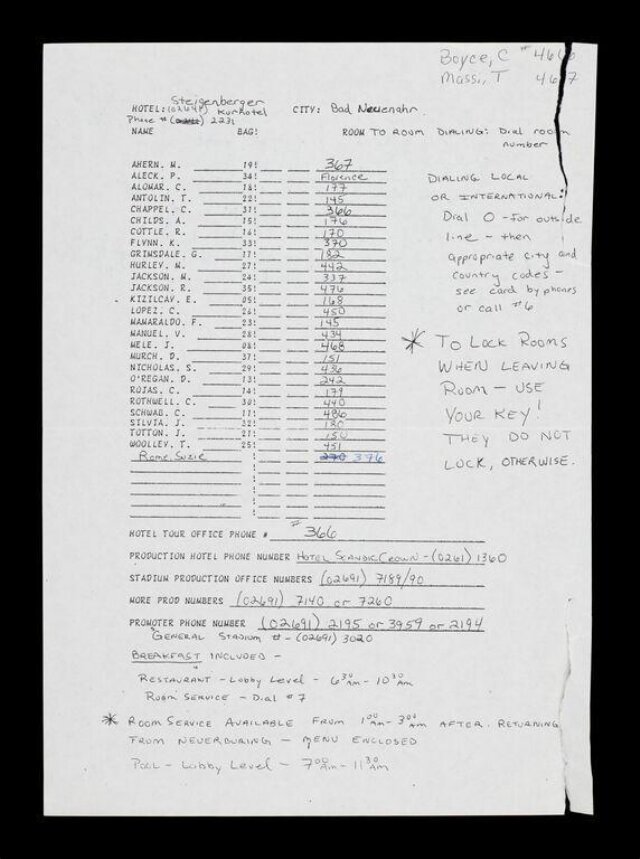 Boyce, C # 466
Massi, T 467
Steigenberger
HOTEL: (02641) Kurhotel CITY: Bad Neuenahr
Phone # 2231
NAME BAG! ROOM TO ROOM DIALING: Dial room number
AHERN. M. 19! 367
ALECK. P. 34! Florence
ALOMAR. C. 18! 177
ANTOLIN. T. 22! 145
CHAPPEL. C. 31! 366
CHILDS. A. 15! 176
COTTLE. R. 16! 170
FLYNN. K. 33! 370
GRIMSDALE. G. 17! 182
HURLEY. M. 27! 442
JACKSON. M. 24! 337
JACKSON. R. 35! 476
KIZILCAY. E. 05! 168
LOPEZ. C. 26! 450
MAMARALDO. F. 23! 145
MANUEL. V. 28! 434
MELE. J. 08! 468
MURCH. D. 37! 151
NICHOLAS. S. 29! 436
O'REGAN. D. 13! 242
ROJAS. C. 14! 179
ROTHWELL. C. 30! 440
SCHWAB. C. 11! 486
SILVIA. J. 32! 180
TOTTON. J. 21! 150
WOOLLEY. T. 25! 451
Rome, Suzie 270 376
DIALING LOCAL
OR INTERNATIONAL:
Dial 0 - for outside
line - then
appropriate city and
country codes -
see card by phones
or call #6
* TO LOCK ROOMS
WHEN LEAVING
ROOM - USE
YOUR KEY!
THEY DO NOT
LOCK, OTHERWISE.
HOTEL TOUR OFFICE PHONE # # 366
PRODUCTION HOTEL PHONE NUMBER HOTEL SCANDIC CROWN - (0261) 1360
STADIUM PRODUCTION OFFICE NUMBERS (02691) 7189/90
MORE PROD NUMBERS (02691) 7140 or 7260
PROMOTER PHONE NUMBER (02691) 2195 or 3959 or 2194
GENERAL STADIUM # - (02691) 3020
BREAKFAST INCLUDED -
RESTAURANT - Lobby Level - 6 30 AM - 10 30 AM
Room SERVICE - Dial # 7
* ROOM SERVICE AVAILABLE FROM 1 00 AM - 3 00 AM AFTER RETURNING
FROM NEUERBURING - MENU ENCLOSED
POOL - Lobby Level - 7 00 AM - 11 30 AM